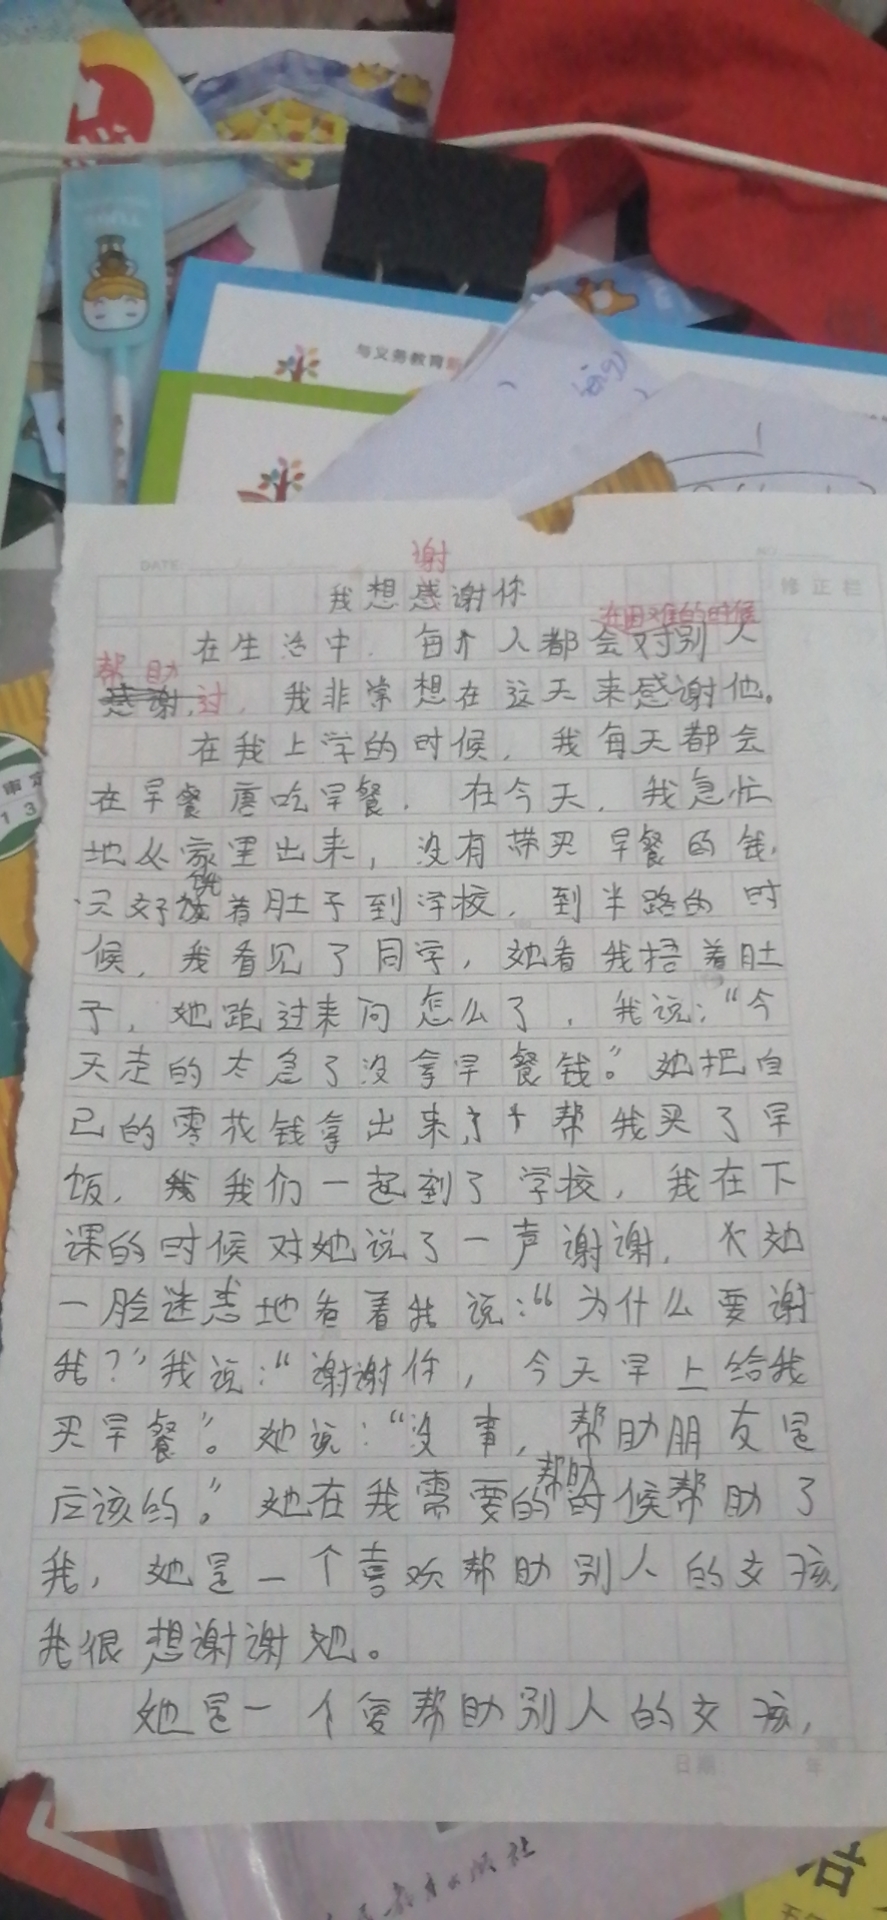 与义务教育
DATE
谢
修正栏
我想感谢你
在困难的时候
在生活中，每个人都会对别人
帮助
感谢过，我非常想在这天来感谢他。
在我上学的时候，我每天都会
审定
13
在早餐店吃早餐，在今天，我急忙
地从家里出来，没有带买早餐的钱，
只好捂着肚子到学校，到半路的时
候，我看见了同学，她看我捂着肚
子，她跑过来问怎么了，我说：“今
天走的太急了没拿早餐钱。”她把自
己的零花钱拿出来了帮我买了早
饭，我我们一起到了学校，我在下
课的时候对她说了一声谢谢，她
一脸迷惑地看着我说：“为什么要谢
我？”我说：“谢谢你，今天早上给我
买早餐”。她说：“没事，帮助朋友是
帮助
应该的。”她在我需要的时候帮助了
我，她是一个喜欢帮助别人的女孩，
我很想谢谢她。
她是一个爱帮助别人的女孩，
日期 年
教育出版社